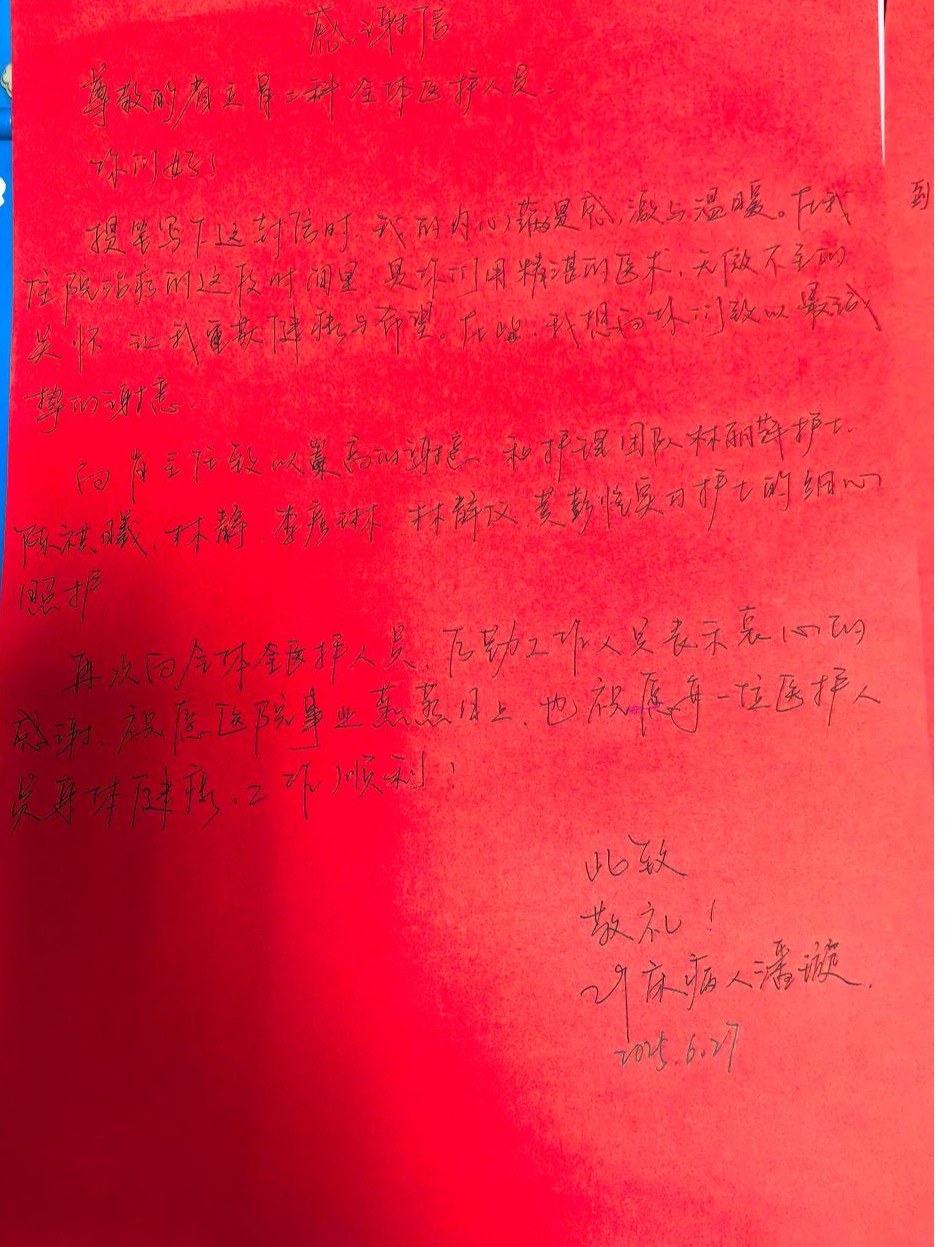 感谢信
尊敬的省立骨二科全体医护人员:
你们好!
提笔写下这封信时,我的内心满是感激与温暖。在我
到
住院治疗的这段时间里 是你们用精湛的医术,无微不至的
关怀 让我重获健康与希望。在此,我想向你们致以最诚
挚的谢意.
向肖主任致以最高的谢意 和护理团队林丽 护士.
陈祺曦,林静,李彦琳 林静仪 黄彭 实习护士的细心
照护
再次向全体全医护人员,后勤工作人员表示衷心的
感谢、祝愿医院事业蒸蒸日上,也祝愿每一位医护人
员身体健康,工作顺利!
此致
敬礼!
床病人潘璇.
2025.6.27